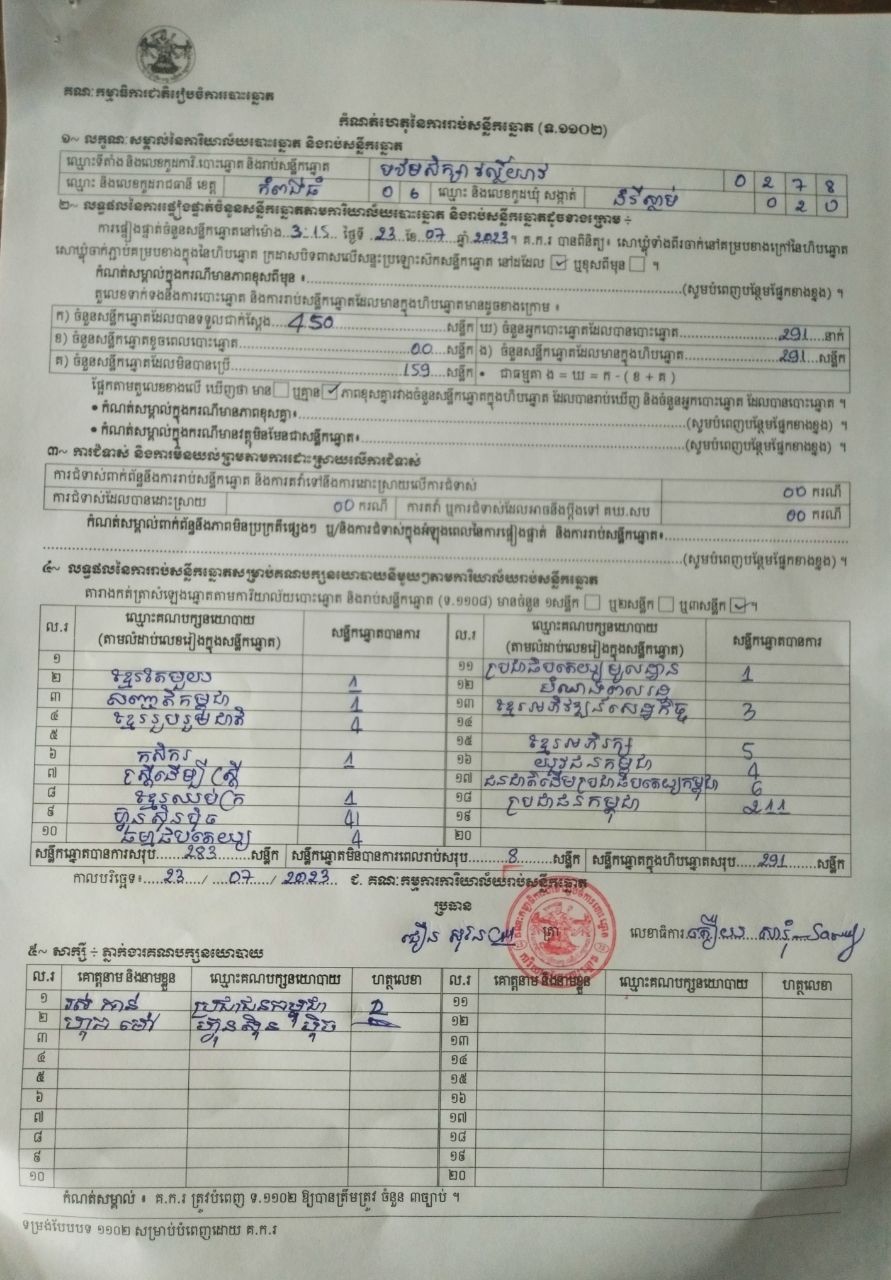 គណៈកម្មាធិការជាតិរៀបចំការបោះឆ្នោត
កំណត់ហេតុនៃការរាប់សន្លឹកឆ្នោត (ទ.១១០២)
១~ លក្ខណៈសម្គាល់នៃការិយាល័យបោះឆ្នោត និងរាប់សន្លឹកឆ្នោត
ឈ្មោះទីតាំង និងលេខកូដការិ.បោះឆ្នោត និងរាប់សន្លឹកឆ្នោត បឋមសិក្សា 0 2 7 8
ឈ្មោះ និងលេខកូដរាជធានី ខេត្ត កំពង់ធំ 0 6 ឈ្មោះ និងលេខកូដឃុំ សង្កាត់ 0 2 0
២~ លទ្ធផលនៃការផ្ទៀងផ្ទាត់ចំនួនសន្លឹកឆ្នោតតាមការិយាល័យបោះឆ្នោត និងរាប់សន្លឹកឆ្នោតដូចខាងក្រោម ÷
ការផ្ទៀងផ្ទាត់ចំនួនសន្លឹកឆ្នោតនៅម៉ោង 3:15 ថ្ងៃទី 23 ខែ 07 ឆ្នាំ 2023។ គ.ក.រ បានពិនិត្យ៖ សោឃ្លុំទាំងពីរចាក់នៅគម្របខាងក្រៅនៃហិបឆ្នោត
សោឃ្លុំចាក់ភ្ជាប់គម្របខាងក្នុងនៃហិបឆ្នោត ក្រដាសបិទពាសលើសន្ទះប្រឡោះស៊កសន្លឹកឆ្នោត នៅដដែល ☑ ឬខុសពីមុន ☐ ។
កំណត់សម្គាល់ក្នុងករណីមានភាពខុសពីមុន ៖ (សូមបំពេញបន្ថែមផ្នែកខាងខ្នង) ។
តួលេខទាក់ទងនឹងការបោះឆ្នោត និងការរាប់សន្លឹកឆ្នោតដែលមានក្នុងហិបឆ្នោតមានដូចខាងក្រោម ៖
ក) ចំនួនសន្លឹកឆ្នោតដែលបានទទួលជាក់ស្តែង 450 សន្លឹក ឃ) ចំនួនអ្នកបោះឆ្នោតដែលបានបោះឆ្នោត 291 នាក់
ខ) ចំនួនសន្លឹកឆ្នោតខូចពេលបោះឆ្នោត 00 សន្លឹក ង) ចំនួនសន្លឹកឆ្នោតដែលមានក្នុងហិបឆ្នោត 291 សន្លឹក
គ) ចំនួនសន្លឹកឆ្នោតដែលមិនបានប្រើ 159 សន្លឹក • ជាធម្មតា ង = ឃ = ក - ( ខ + គ )
ផ្អែកតាមតួលេខខាងលើ ឃើញថា មាន ☐ ឬគ្មាន ☑ ភាពខុសគ្នារវាងចំនួនសន្លឹកឆ្នោតក្នុងហិបឆ្នោត ដែលបានរាប់ឃើញ និងចំនួនអ្នកបោះឆ្នោត ដែលបានបោះឆ្នោត ។
• កំណត់សម្គាល់ក្នុងករណីមានភាពខុសគ្នា៖ (សូមបំពេញបន្ថែមផ្នែកខាងខ្នង) ។
• កំណត់សម្គាល់ក្នុងករណីមានវត្ថុមិនមែនជាសន្លឹកឆ្នោត៖ (សូមបំពេញបន្ថែមផ្នែកខាងខ្នង) ។
៣~ ការជំទាស់ និងការមិនយល់ព្រមតាមការដោះស្រាយលើការជំទាស់
ការជំទាស់ពាក់ព័ន្ធនឹងការរាប់សន្លឹកឆ្នោត និងការតវ៉ាទៅនឹងការដោះស្រាយលើការជំទាស់ 00 ករណី
ការជំទាស់ដែលបានដោះស្រាយ 00 ករណី ការតវ៉ា ឬការជំទាស់ដែលអាចនឹងប្តឹងទៅ គឃ.សប 00 ករណី
កំណត់សម្គាល់ពាក់ព័ន្ធនឹងភាពមិនប្រក្រតីផ្សេងៗ ឬ/និងការជំទាស់ក្នុងអំឡុងពេលនៃការផ្ទៀងផ្ទាត់ និងការរាប់សន្លឹកឆ្នោត៖
(សូមបំពេញបន្ថែមផ្នែកខាងខ្នង) ។
៤~ លទ្ធផលនៃការរាប់សន្លឹកឆ្នោតសម្រាប់គណបក្សនយោបាយនីមួយៗតាមការិយាល័យរាប់សន្លឹកឆ្នោត
តារាងកត់ត្រាសំឡេងឆ្នោតតាមការិយាល័យបោះឆ្នោត និងរាប់សន្លឹកឆ្នោត (ទ.១១០៨) មានចំនួន ១សន្លឹក ☐ ឬ២សន្លឹក ☐ ឬ៣សន្លឹក ☑។
ល.រ ឈ្មោះគណបក្សនយោបាយ (តាមលំដាប់លេខរៀងក្នុងសន្លឹកឆ្នោត) សន្លឹកឆ្នោតបានការ ល.រ ឈ្មោះគណបក្សនយោបាយ (តាមលំដាប់លេខរៀងក្នុងសន្លឹកឆ្នោត) សន្លឹកឆ្នោតបានការ
១ ១១ ប្រជាធិបតេយ្យមូលដ្ឋាន 1
២ ខ្មែរតែមួយ 1 ១២
៣ សញ្ជាតិកម្ពុជា 1 ១៣ ខ្មែរអភិវឌ្ឍន៍សេដ្ឋកិច្ច 3
៤ ខ្មែររួបរួមជាតិ 4 ១៤
៥ ១៥ ខ្មែរអភិរក្ស 5
៦ កសិករ 1 ១៦ យុវជនកម្ពុជា 4
៧ ស្ត្រីដើម្បីស្ត្រី ១៧ ជនជាតិដើមប្រជាធិបតេយ្យកម្ពុជា 6
៨ ខ្មែរឈប់ក្រ 1 ១៨ ប្រជាជនកម្ពុជា 211
៩ ហ៊្វុនស៊ិនប៉ិច 41 ១៩
១០ ធម្មាធិបតេយ្យ 4 ២០
សន្លឹកឆ្នោតបានការសរុប 283 សន្លឹក សន្លឹកឆ្នោតមិនបានការពេលរាប់សរុប 8 សន្លឹក សន្លឹកឆ្នោតក្នុងហិបឆ្នោតសរុប 291 សន្លឹក
កាលបរិច្ឆេទ៖ 23 / 07 / 2023 ជ. គណៈកម្មការការិយាល័យរាប់សន្លឹកឆ្នោត
ប្រធាន
ត្រា លេខាធិការ
៥~ សាក្សី ÷ ភ្នាក់ងារគណបក្សនយោបាយ
ល.រ គោត្តនាម និងនាមខ្លួន ឈ្មោះគណបក្សនយោបាយ ហត្ថលេខា ល.រ គោត្តនាម និងនាមខ្លួន ឈ្មោះគណបក្សនយោបាយ ហត្ថលេខា
១ ប្រជាជនកម្ពុជា ១១
២ ហ៊្វុនស៊ិនប៉ិច ១២
៣ ១៣
៤ ១៤
៥ ១៥
៦ ១៦
៧ ១៧
៨ ១៨
៩ ១៩
១០ ២០
កំណត់សម្គាល់ ៖ គ.ក.រ ត្រូវបំពេញ ទ.១១០២ ឱ្យបានត្រឹមត្រូវ ចំនួន ៣ច្បាប់ ។
ទម្រង់បែបបទ ១១០២ សម្រាប់បំពេញដោយ គ.ក.រ